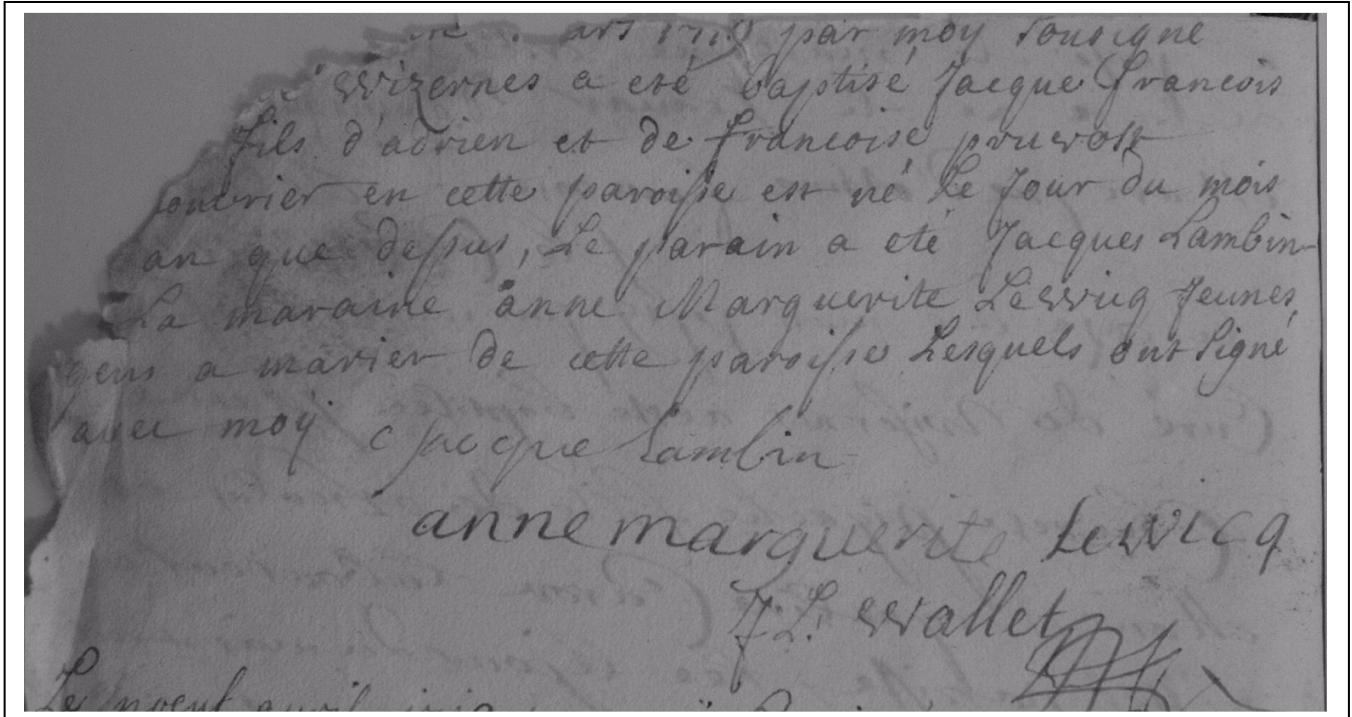 par moy sousigné
wizernes a eté baptisé Jacque francois
fils d'adrien et de francoise pruvost
en cette paroisse est né le Jour du mois
an que dessus, Le parain a eté Jacques Lambin
La maraine anne Marguerite Lewicq Jeunes
gens a marier de cette paroisse Lesquels ont signé
avec moy Jacque Lambin
anne marguerite Lewicq
J L. Wallet
Le neuf avril